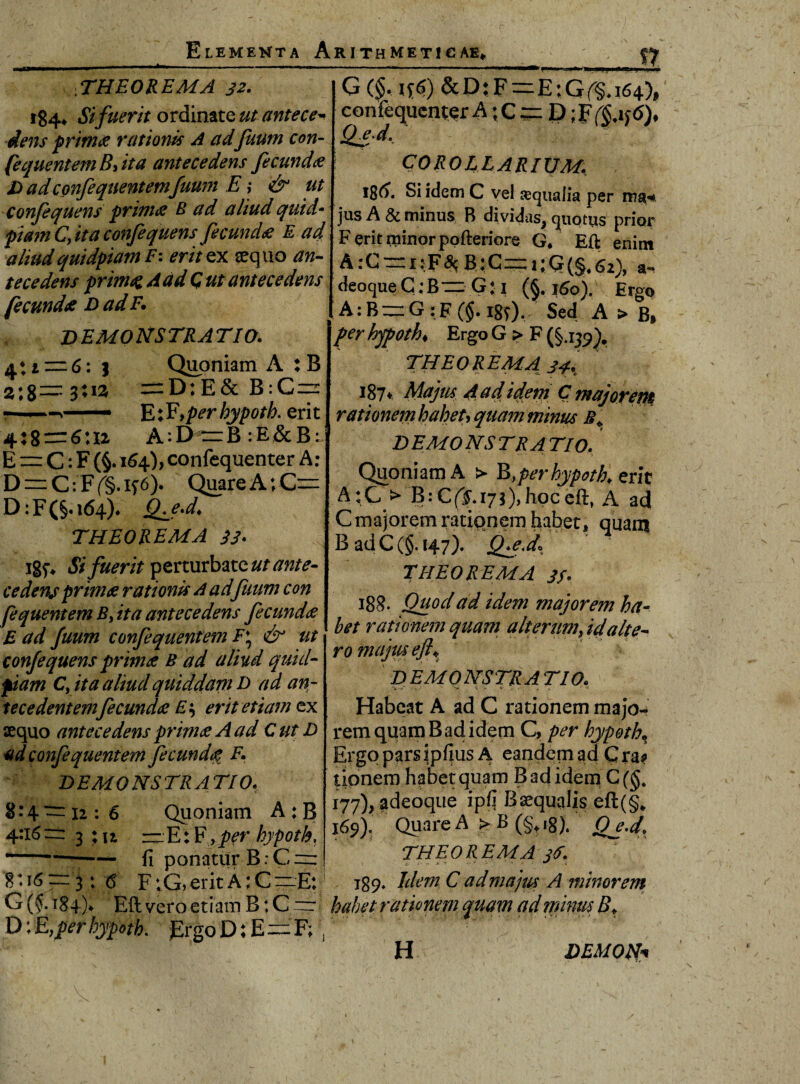 ELEMENTA ARITHMETICAE. 57
THEOREMA 32.
184. Si fuerit ordinate ut antece-
dens primæ rationis A ad suum con-
sequentem B, ita antecedens secundæ
D ad consequentem suum E; & ut
consequens primæ B ad aliud quid-
piam C, ita consequens secundæ E ad
aliud quidpiam F: erit ex æquo an-
tecedens primæ A ad C ut antecedens
secundæ D ad F.
DEMONSTRATIO.
4:1=6:3 Quoniam A:B
2:8=3:12 =D:E & B:C=
E:F, per hypoth. erit
4:8=6:12 A:D=B:E&B:
E=C:F(§.164), consequenter A:
D=C:F(§.156). Quare A:C=
D:F(§.164). Q.e.d.
THEOREMA 33.
185. Si fuerit perturbate ut ante-
cedens primæ rationis A ad suum con
sequentem B, ita antecedens secundæ
E ad suum consequentem F; & ut
consequens primæ B ad aliud quid-
piam C, ita aliud quiddam D ad an-
tecedentem secundæ E; erit etiam ex
æquo antecedens primæ A ad C ut D
ad consequentem secundæ F.
DEMONSTRATIO.
8:4=12:6 Quoniam A:B
4:16=3:12 =E:F, per hypoth.
si ponatur B:C=
8:16=3:6 F:G, erit A:C=E:
G(§.184). Est vero etiam B:C=
D:E, per hypoth. Ergo D:E=F;
G(§.156)&D:F=E:G(§.164),
consequenter A:C=D:F(§.156).
Q.e.d.
COROLLARIUM.
186. Si idem C vel æqualia per ma-
jus A & minus B dividas, quotus prior
F erit minor posteriore G. Est enim
A:C=1:F& B:C=1:G(§.62), a-
deoque C:B=G:1 (§.160). Ergo
A:B=G:F(§.185). Sed A > B,
per hypoth. Ergo G > F (§.139).
THEOREMA 34.
187. Majus A ad idem C majorem
rationem habet, quam minus B.
DEMONSTRATIO.
Quoniam A > B, per hypoth. erit
A:C > B:C(§.173), hoc est, A ad
C majorem rationem habet, quam
B ad C(§.147). Q.e.d.
THEOREMA 35.
188. Quod ad idem majorem ha-
bet rationem quam alterum, id alte-
ro majus est.
DEMONSTRATIO.
Habeat A ad C rationem majo-
rem quam B ad idem C, per hypoth.
Ergo pars ipsius A eandem ad C ra-
tionem habet quam B ad idem C(§.
177), adeoque ipsi B æqualis est(§.
169). Quare A > B (§.18). Q.e.d.
THEOREMA 36.
189. Idem C ad majus A minorem
habet rationem quam ad minus B.
H DEMON-